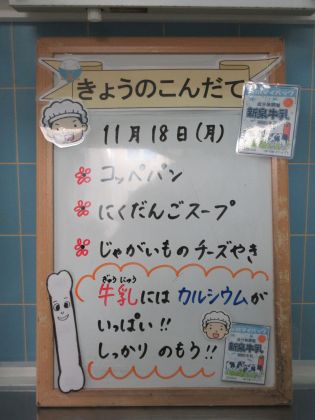 きょうのこんだて
11月18日(月)
コッペパン
にくだんごスープ
じゃがいものチーズやき
ぎゅうにゅう
牛乳にはカルシウムが
いっぱい!!
しっかりのもう!!
新泉牛乳
新泉牛乳